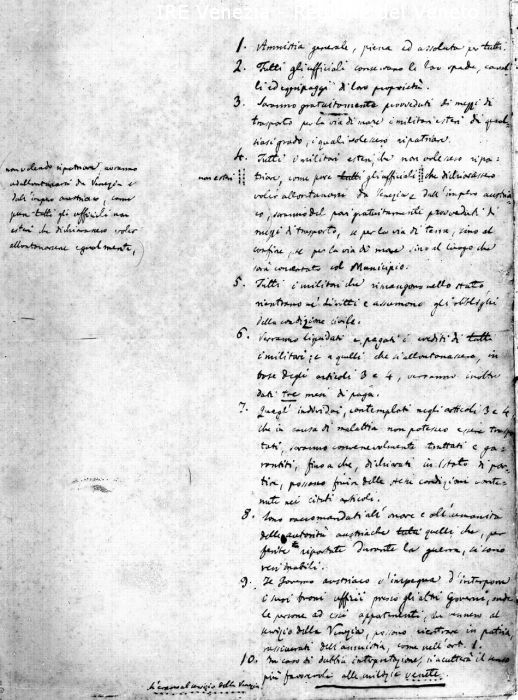 IRE Venezia
1. Amnistia generale, piena ed assoluta per tutti.
2. Tutti gli ufficiali conservano le loro spade, caval-
li ed equipaggi di loro proprietà.
3. Saranno gratuitamente proveduti di mezzi di
trasporto per la via di mare i militari esteri di qual-
siasi grado, i quali volessero ripatriare.
4. Tutti i militari esteri, che non volessero ripa-
triare, come pure tutti gli ufficiali che dichiarassero
voler allontanarsi da Venezia e dall'impero austria-
co, saranno del pari gratuitamente proveduti di
mezzi di trasporto, se per la via di terra, sino al
confine, se per la via di mare sino al luogo che
sarà concertato col Municipio.
non esteri
non volendo ripatriare avranno
ad allontanarsi da Venezia e
dall'impero austriaco, come
pure tutti gli ufficiali non
esteri che dichiarassero voler
allontanarsene egualmente,
5. Tutti i militari che rimangono nello stato,
rientrano ne' diritti e assumono gli obblighi
della condizione civile.
6. Verranno liquidati e pagati i crediti di tutti
i militari; e a quelli che si allontanassero, in
base degli articoli 3 e 4, verranno inoltre
dati tre mesi di paga.
7. Quegl' individui, contemplati negli articoli 3 e 4,
che in causa di malattia non potessero essere traspor-
tati, saranno convenevolmente trattati e ga-
rantiti, fino a che, dichiarati in istato di par-
tire, possano fruire delle stesse condizioni conte-
nute nei citati articoli.
8. Sono raccomandati all' onore e all' umanità
delle autorità austriache tutti quelli che, per
ferite riportate durante la guerra, si sono
resi inabili.
9. Il Governo austriaco s' impegna d' interporre
i suoi buoni ufficii presso gli altri Governi, onde
le persone ad essi appartenenti, che erano al
servizio della Venezia, possano rientrare in patria
rassicurati dell' amnistia, come nell' art. 1.
10. In caso di dubbia interpretazione, si adotterà il senso
più favorevole alle milizie venete.
ch' erano al servizio della Venezia